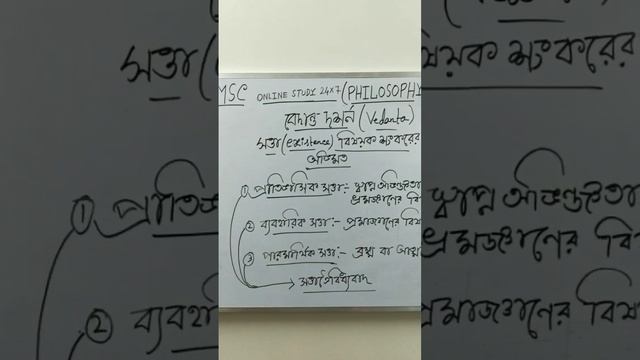 MSC ONLINE STUDY 24X7 (PHILOSOPHY
বেদান্ত দর্শন (Vedanta)
সত্তা (existence) বিষয়ক শংকরের
অভিমত
① প্রাতিভাসিক সত্তা:- স্বপ্ন অভিজ্ঞতা
ভ্রমজ্ঞানের বি
② ব্যবহারিক সত্তা:- প্রমাজ্ঞানের বিষ
③ পারমার্থিক সত্তা:- ব্রহ্ম বা আত্ম
→ সত্তাত্রৈবিধ্যবাদ